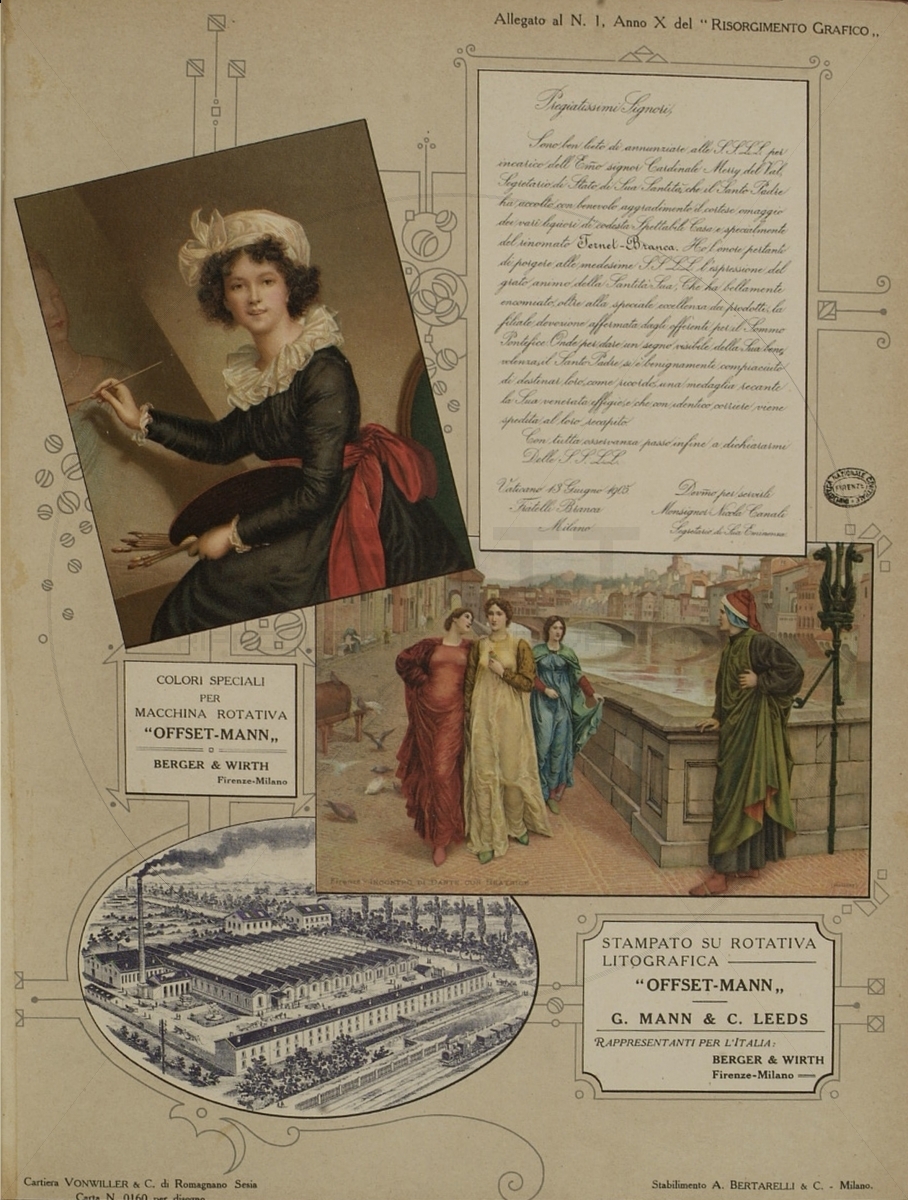 Allegato al N. 1, Anno X del "RISORGIMENTO GRAFICO„
Pregiatissimi Signori,
Sono ben lieto di annunziare alle S.S.L.L. per
incarico dell'Emo signor Cardinale Merry del Val,
Segretario di Stato di Sua Santità, che il Santo Padre
ha accolto con benevolo aggradimento il cortese omaggio
dei vari liquori di codesta Spettabile Casa e specialmente
del rinomato Fernet-Branca. Ho l'onore pertanto
di porgere alle medesime S.S.L.L. l'espressione del
grato animo della Santità Sua, Che ha bellamente
encomiato, oltre alla speciale eccellenza dei prodotti, la
filiale devozione affermata dagli offerenti per il Sommo
Pontefice. Onde per dare un segno visibile della Sua bene
volenza, il Santo Padre si è benignamente compiaciuto
di destinar loro, come ricordo, una medaglia recante
la Sua venerata effigie, e che con identico corriere viene
spedita al loro recapito.
Con tutta osservanza passo infine a dichiararmi
Delle S.S.L.L.
Vaticano 13 Giugno 1905
Devmo per servirli
Fratelli Branca
Monsignor Nicola Canali
Milano
Segretario di Sua Eminenza
FIRENZE
COLORI SPECIALI
PER
MACCHINA ROTATIVA
"OFFSET-MANN„
BERGER & WIRTH
Firenze-Milano
INCONTRO DI DANTE CON BEATRICE
STAMPATO SU ROTATIVA
LITOGRAFICA
"OFFSET-MANN„
G. MANN & C. LEEDS
RAPPRESENTANTI PER L'ITALIA:
BERGER & WIRTH
Firenze-Milano
Cartiera VONWILLER & C. di Romagnano Sesia
Carta N. 0160 per disegno
Stabilimento A. BERTARELLI & C. - Milano.